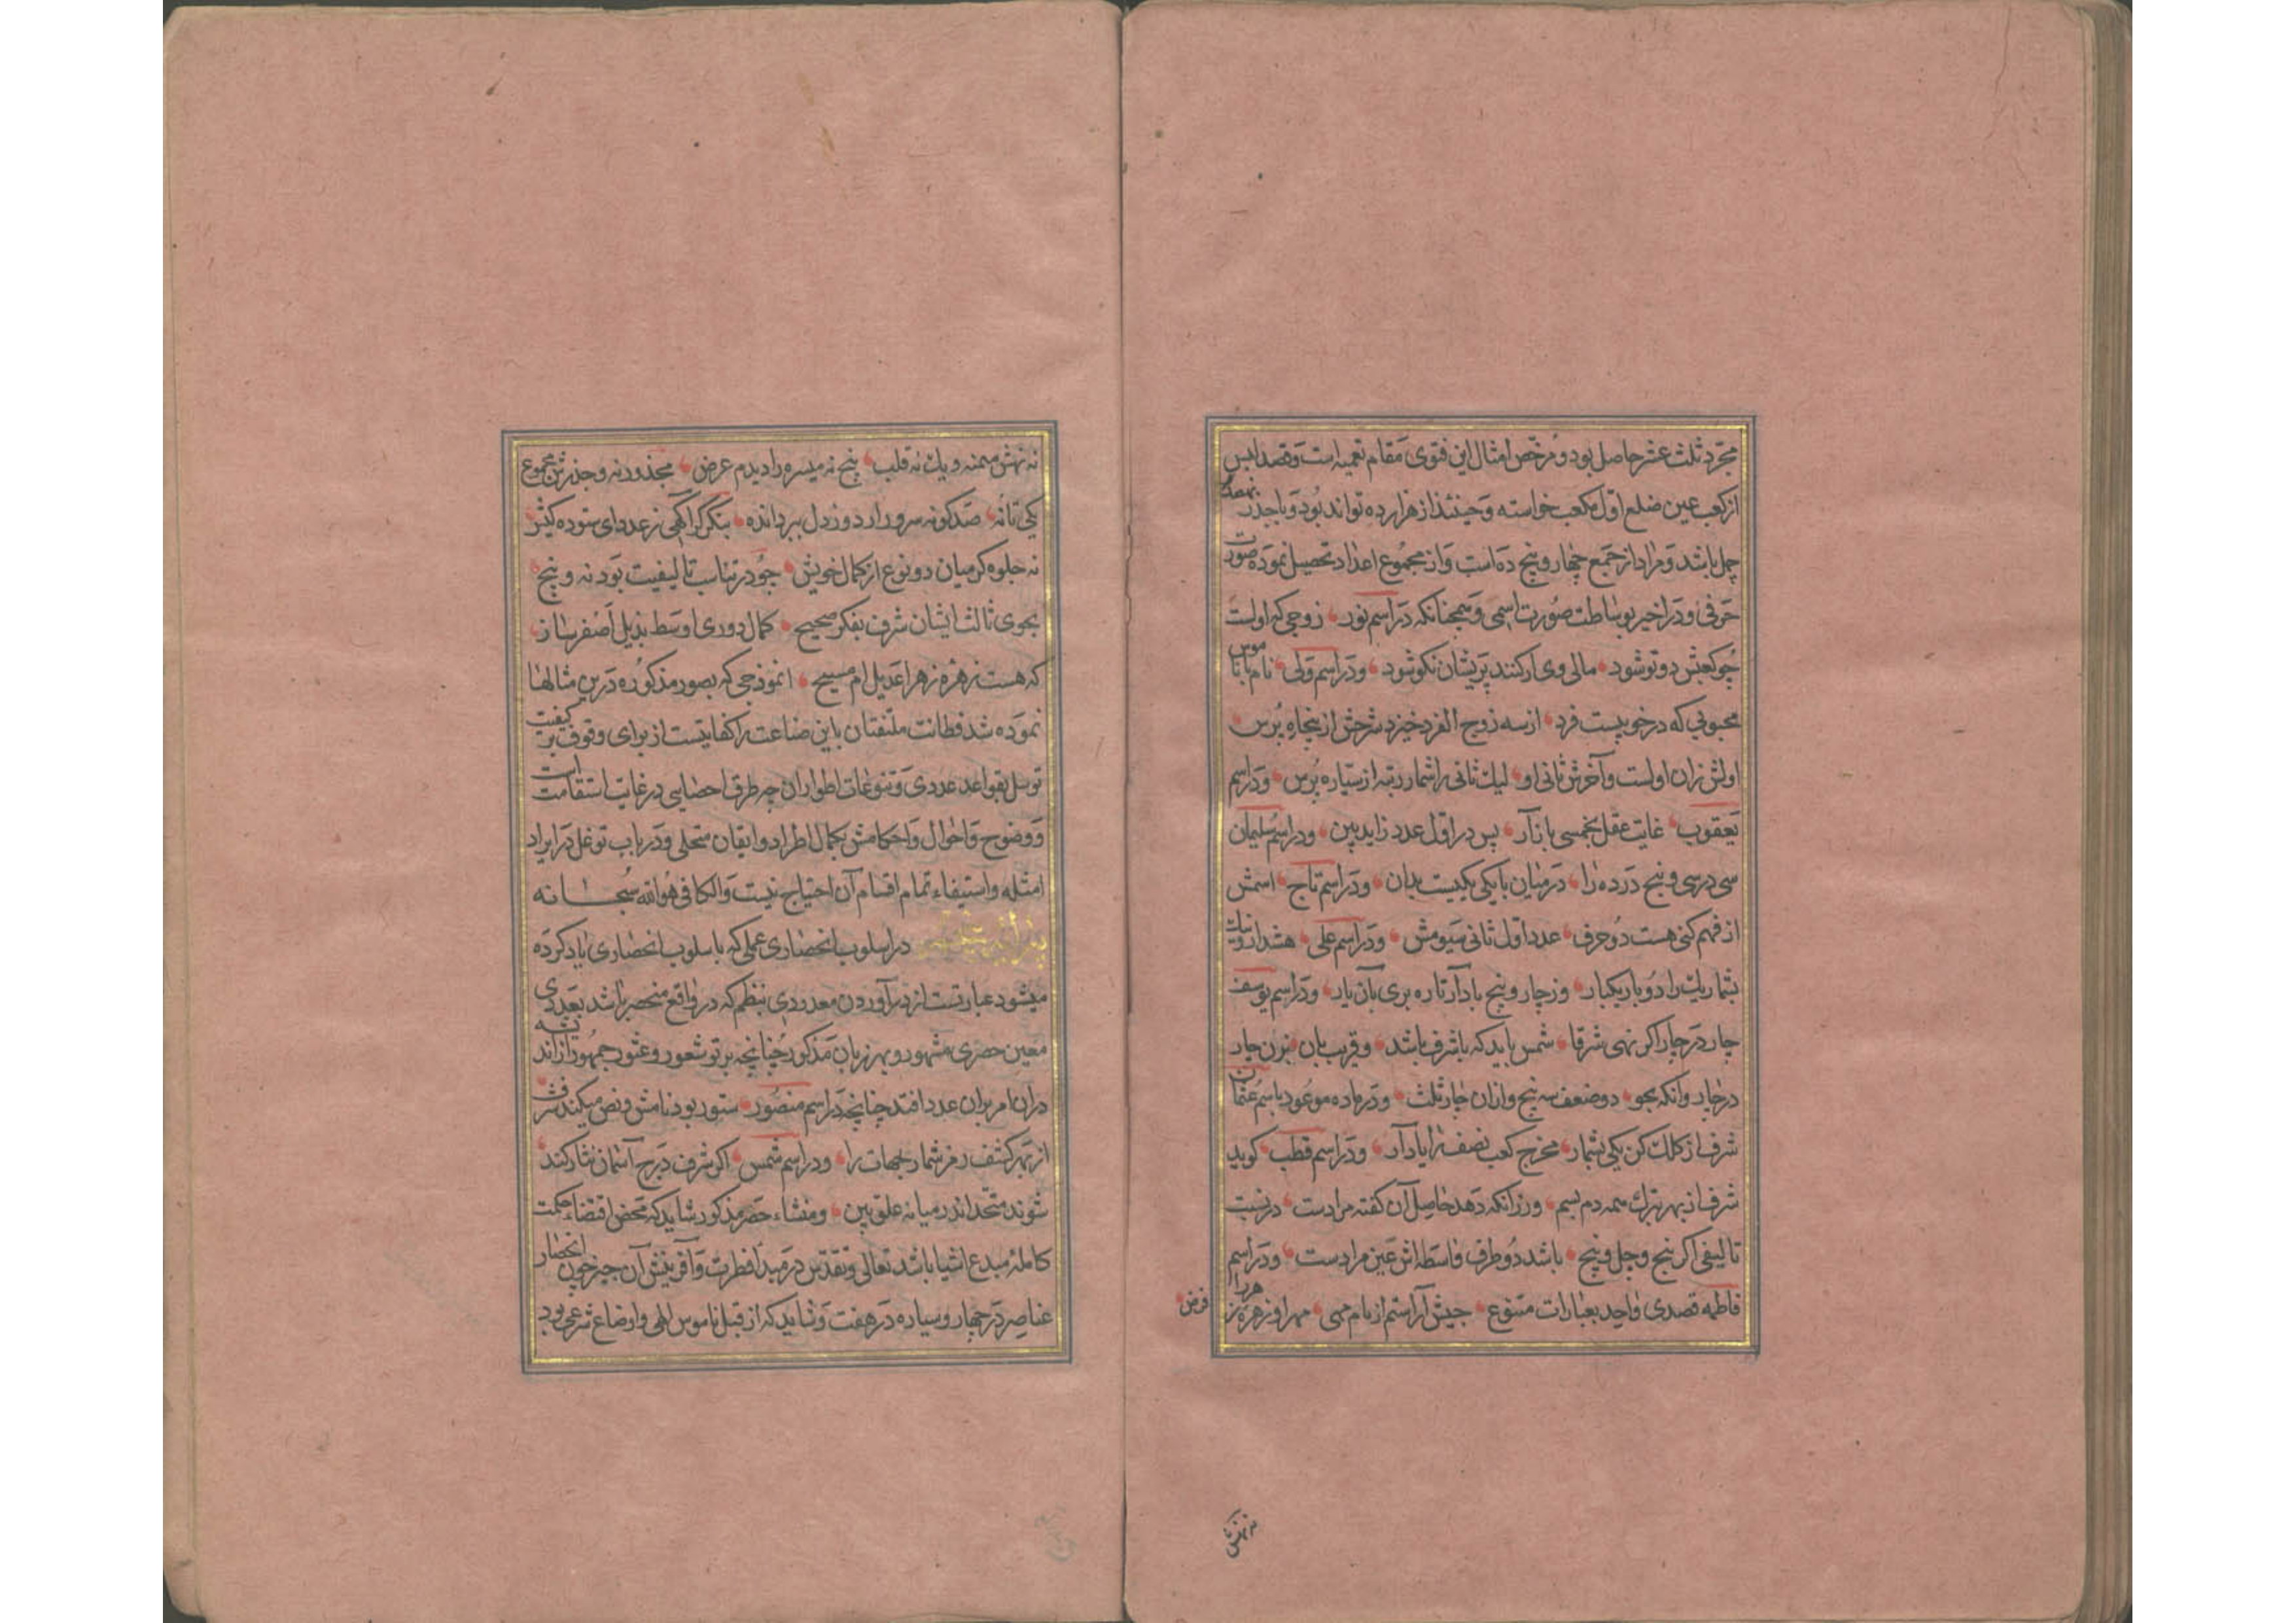 مجرد ثلث عشر حاصل بود و مرخص امثال این فتوی مقام تعمیه است و قصد ابس
از کعب عین ضلع اول مکعب خواسته و حینئذ از هزار ده تواند بود و با جذر نهصد
چل باشد و مراد از جمع چهار و پنج ده است و از مجموع اعداد تحصیل نموده صورت
حرفی و در اخیر بوساطت صورت اسمی و همچنانکه در اسم نور زوجی که اولست
چو کعبش دو تو شود مالی وی ار کنند پریشان نکو شود و در اسم ولی نام با نا موس
محبوبی که در خوبیست فرد از سه زوج الفرد خیزد شرحش از پنجاه پرس
اولش زان اولست و آخرش ثانی او لیك ثانی را شمار رتبه از سیاره پرس و در اسم
یعقوب غایت عقل بخمسی باز آر پس در اول عدد زاید بین و در اسم سلیمان
سی در سی و پنج در ده را در میان با یکی یکیست بدان و در اسم تاج اسمش
از فهم کنی هست دو حرف عدد اول ثانی سیومش و در اسم علی هشدار و نیك
بشمار یك را دو بار یکبار وز چار و پنج یاد آر تا ره بری بآن یار و در اسم یوسف
چار در چار اگر نهی شرقا شمس باید که با شرف باشد و قریب بان بزن چار
در چار وانکه بجو دو ضعف سه پنج وازان چار ثلث و در ماده موعود باسم عثمان
شرف از کلك کن یکی بشمار مخرج کعب نصف را یاد آر و در اسم قطب کوید
شرف از بهر تبرك همه دم بسم ورزانکه دهد حاصل آن کفته مرادست در نسبت
تالیفی اگر پنج و چل و پنج باشد دو طرف واسطه اش عین مرادست و در اسم
فاطمه قصدی واحد بعبارات متنوع جیش آراستم از نام مهی مهر او زهره زهرا
فرض
نه نهش میمنه و یك نه قلب پنج نه میسره را دیدم عرض مجذور نه و جذرش مجموع
یکی تا نه صد کونه سرور ار دوز دل ببر دانده بنکر کر آکهی ز عدد ای ستوده کیش
نه جلوه کر میان دو نوع از کمال خویش چو در تناسب تالیفیت بود نه و پنج
بجوی ثالث ایشان شرف بفکر صحیح کمال دوری اوسط بذیل اصفر ساز
که هست زهره زهرا عدیل ام مسیح انموذجی که بصور مذکوره درین مثالها
نموده شد فطانت ملتفتان باین صناعت را کفایتست از برای وقوف بر کیفیت
توسل بقواعد عددی و تنوعات اطوار ان چه طرق احصایی در غایت استقامت است
و وضوح و احوال و احکامش بکمال اطراد و ایقان متحلی و در باب توغل در ایراد
امثله و استیفاء تمام اقسام آن احتیاج نیست والکافی هو الله سبحانه
در اسلوب انحصاری عملی که باسلوب انحصاری یاد کرده
میشود عبارتست از در آوردن معدودی بنظم که در واقع منحصر باشد بعددی
معین حصری مشهور و بهر زبان مذکور چنانچه پرتو شعور و عثور جمهور از اند
دران امر بران عدد افتد چنانچه در اسم منصور ستور بود نامش و نص میکند شرف
از بهر کشف رمز شمار جهات را و در اسم شمس اکر شرف درج آسمان نثار کند
شوند متحد اندر میانه علق بین و منشاء حصر مذکور شاید که محض اقتضاء حکمت
کامله مبدع اشیا باشد تعالی و تقدس در مبدأ فطرت و آفرینش آن چیز چون انحصار
عناصر در چهار و سیاره در هفت و شاید که از قبل ناموس الهی و اوضاع شرعی بود